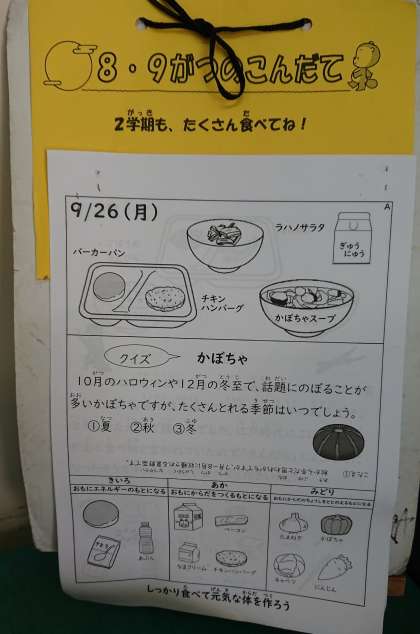 8・9がつのこんだて
2学期も、たくさん食べてね！
9/26(月)
A
ラハノサラタ
ぎゅうにゅう
バーガーパン
チキン
ハンバーグ
かぼちゃスープ
クイズ
かぼちゃ
10月のハロウィンや12月の冬至で、話題にのぼることが
多いかぼちゃですが、たくさんとれる季節はいつでしょう。
①夏 ②秋 ③冬
こたえ①
きいろ
おもにエネルギーのもとになる
あか
おもにからだをつくるもとになる
みどり
おもにからだのちょうしをととのえるもとになる
あぶら
ベーコン
なまクリーム
チキンハンバーグ
たまねぎ
かぼちゃ
キャベツ
にんじん
しっかり食べて元気な体を作ろう